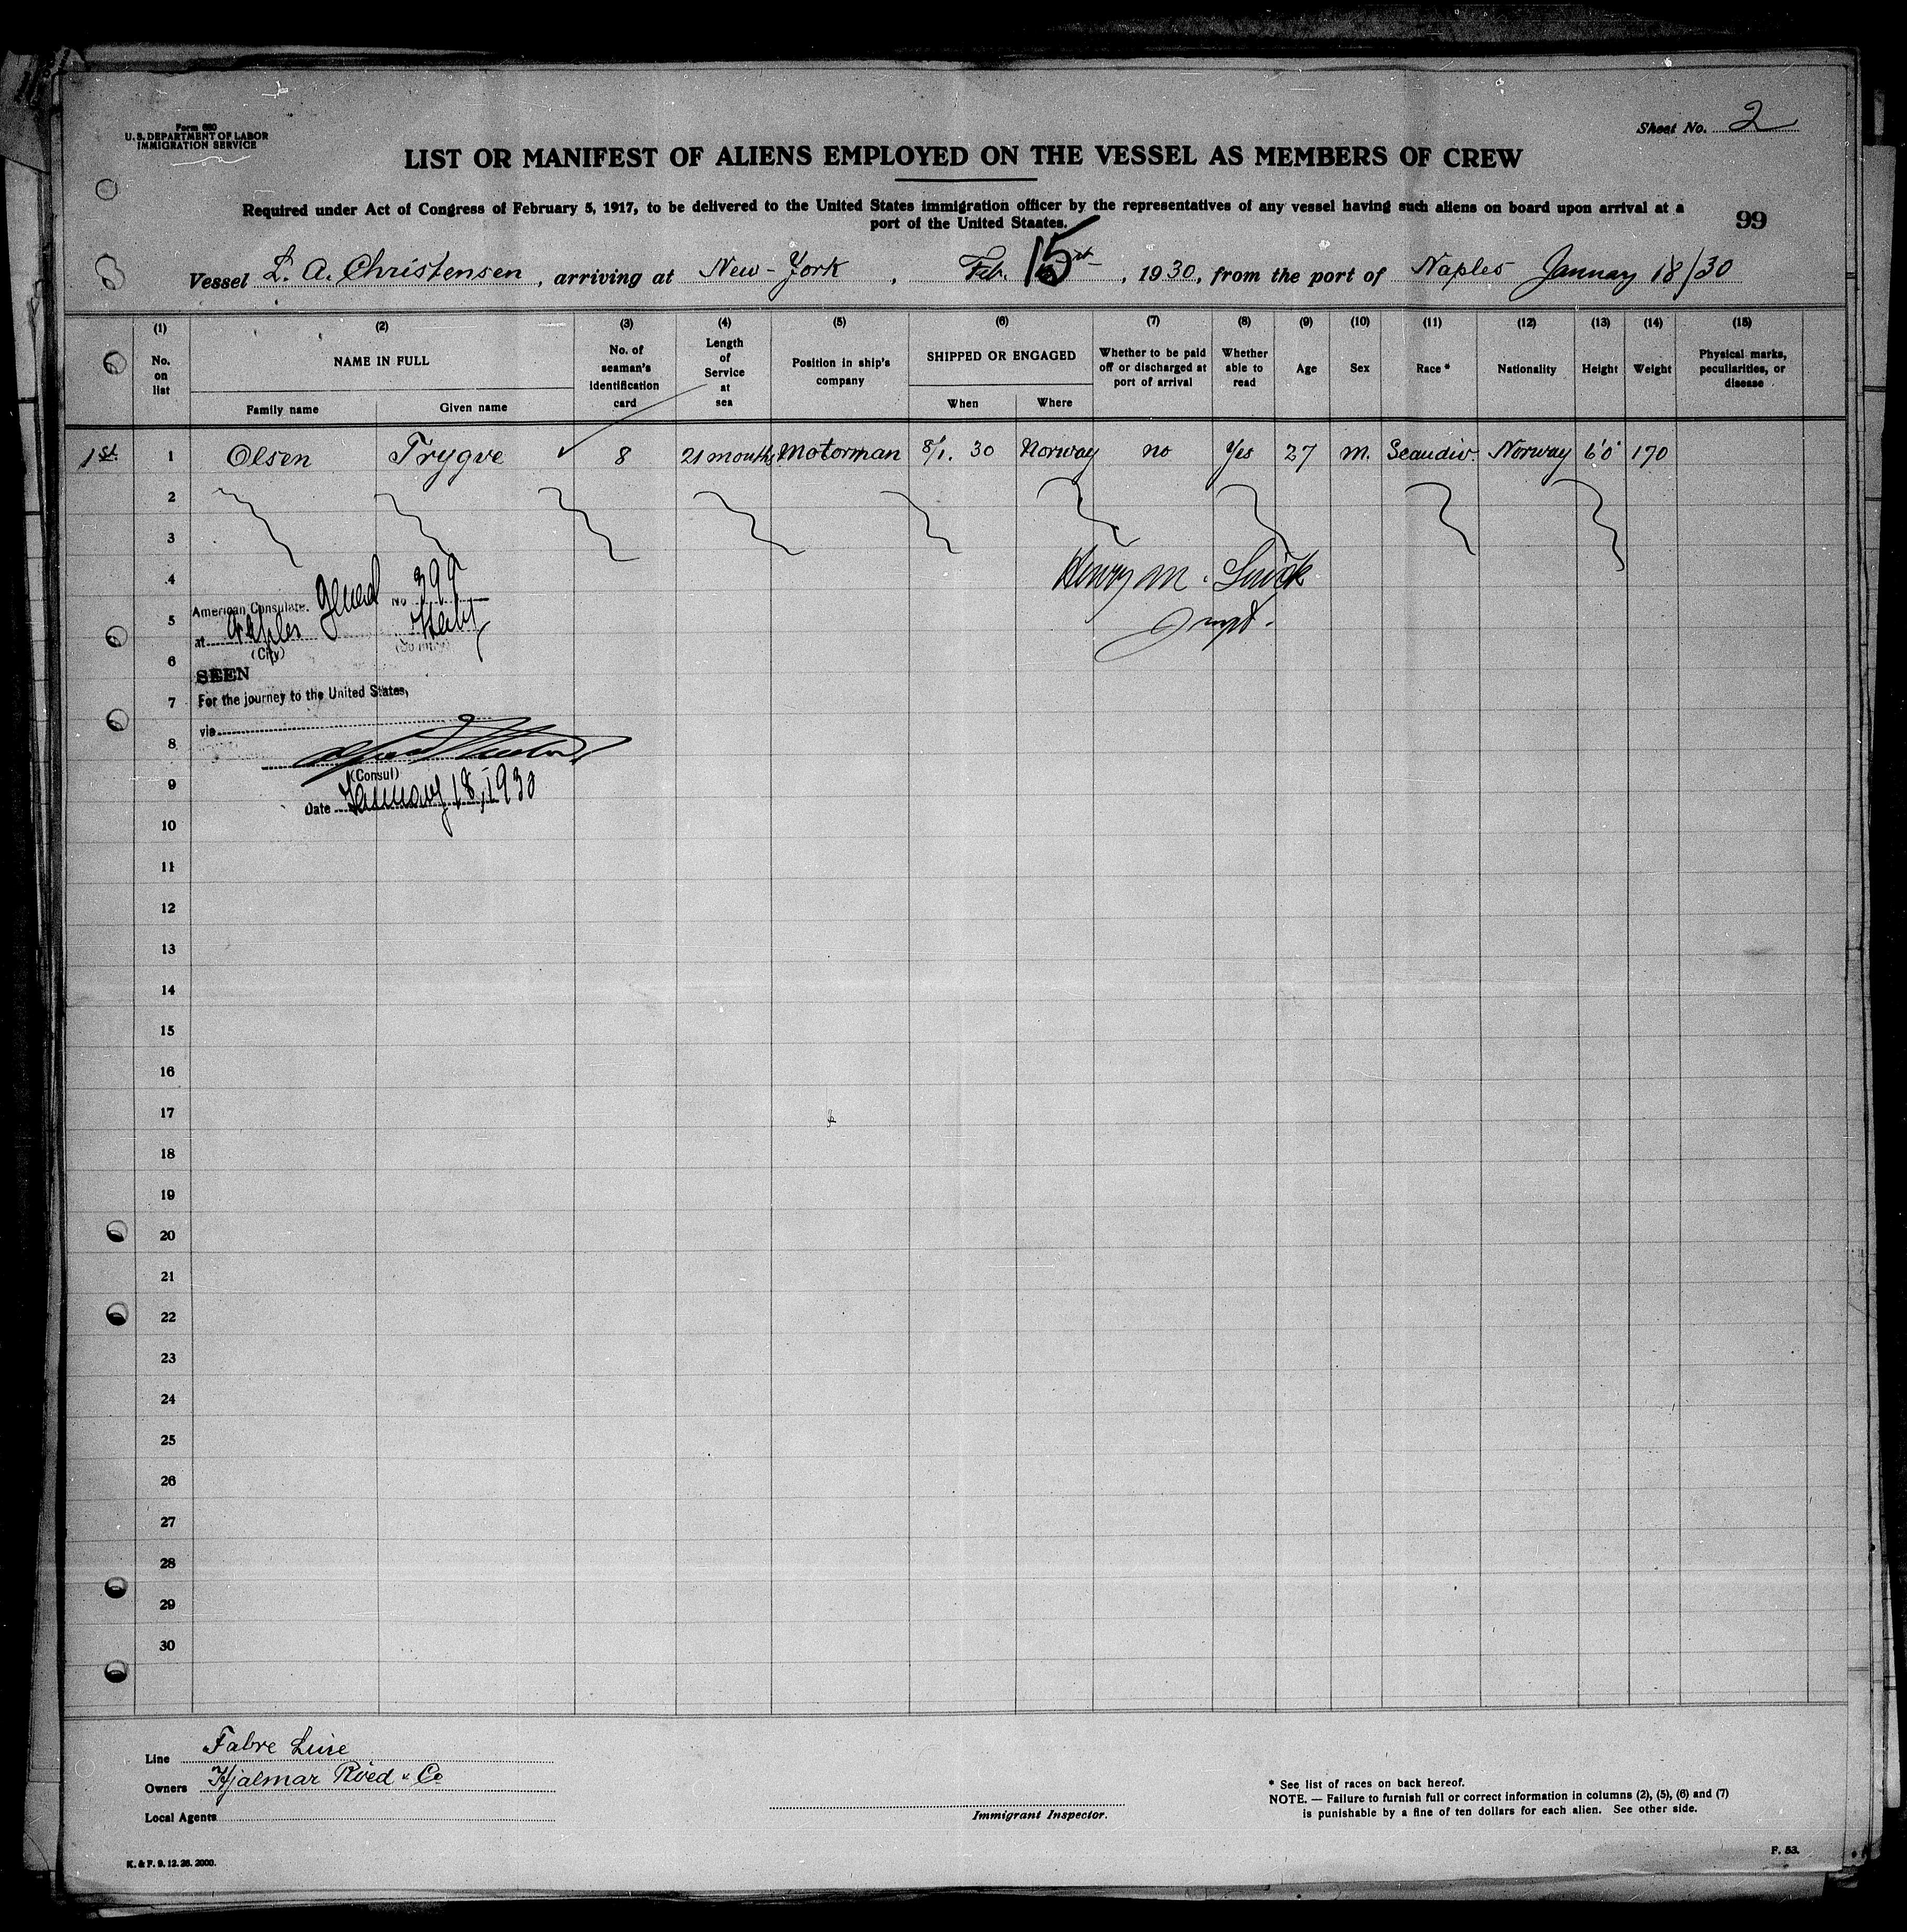 Form 680
U. S. DEPARTMENT OF LABOR
IMMIGRATION SERVICE
Sheet No. 2
LIST OR MANIFEST OF ALIENS EMPLOYED ON THE VESSEL AS MEMBERS OF CREW
Required under Act of Congress of February 5, 1917, to be delivered to the United States immigration officer by the representatives of any vessel having such aliens on board upon arrival at a
port of the United Staates.
99
Vessel L. A. Christensen, arriving at New-York, Feb. 15, 1930, from the port of Naples January 18/30
(1) (2) (3) (4) (5) (6) (7) (8) (9) (10) (11) (12) (13) (14) (15)
No. on list
NAME IN FULL
Family name
Given name
No. of seaman's identification card
Length of Service at sea
Position in ship's company
SHIPPED OR ENGAGED
When
Where
Whether to be paid off or discharged at port of arrival
Whether able to read
Age
Sex
Race *
Nationality
Height
Weight
Physical marks, peculiarities, or disease
1st 1 Olsen Trygve 8 21 months Motorman 8/1. 30 Norway no Yes 27 m. Scandiv. Norway 6'0" 170
2
3
4
Henry M.
American Consulate General No 399
5
at Naples Italy
(City) (Country)
6
SEEN
7
For the journey to the United States,
via
8
(Consul)
9
Date January 18, 1930
10
11
12
13
14
15
16
17
18
19
20
21
22
23
24
25
26
27
28
29
30
Line Fabre Line
Owners Hjalmar Röed & Co
Local Agents
Immigrant Inspector.
* See list of races on back hereof.
NOTE. — Failure to furnish full or correct information in columns (2), (5), (6) and (7)
is punishable by a fine of ten dollars for each alien. See other side.
K. & F. 9. 12. 28. 2000.
F. 53.